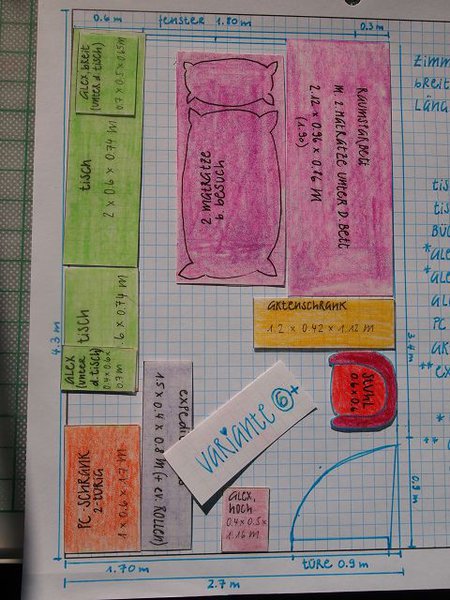 0.6 m
fenster 1.80 m
0.3 m
alex breit
(unter d. tisch)
0.7 x 0.5 x 0.65 m
tisch
2 x 0.6 x 0.74 m
2. matratze
b besuch
Raumsparbett
m 2 matratze unter d. bett
2.12 x 0.96 x 0.26 m
(1.90)
zimm
breit
läng
4.3 m
tisch
.6 x 0.74 m
alex
(unter
d. tisch)
0.4 x 0.6 x
0.7 m
aktenschrank
1.2 x 0.42 x 1.12 m
3.4 m
expedi
1.5 x 0.4 x 0.8 m (+ ev. Rollen)
variante 6+
0.6 x 0.6
PC-Schrank
2-türig
1 x 0.6 x 1.7 m
alex,
hoch
0.4 x 0.5 x
1.16 m
0.9 m
1.70 m
türe 0.9 m
2.7 m
tis
tis
Bü
*ale
*ale
ale
PC
ak
**ex
*
**